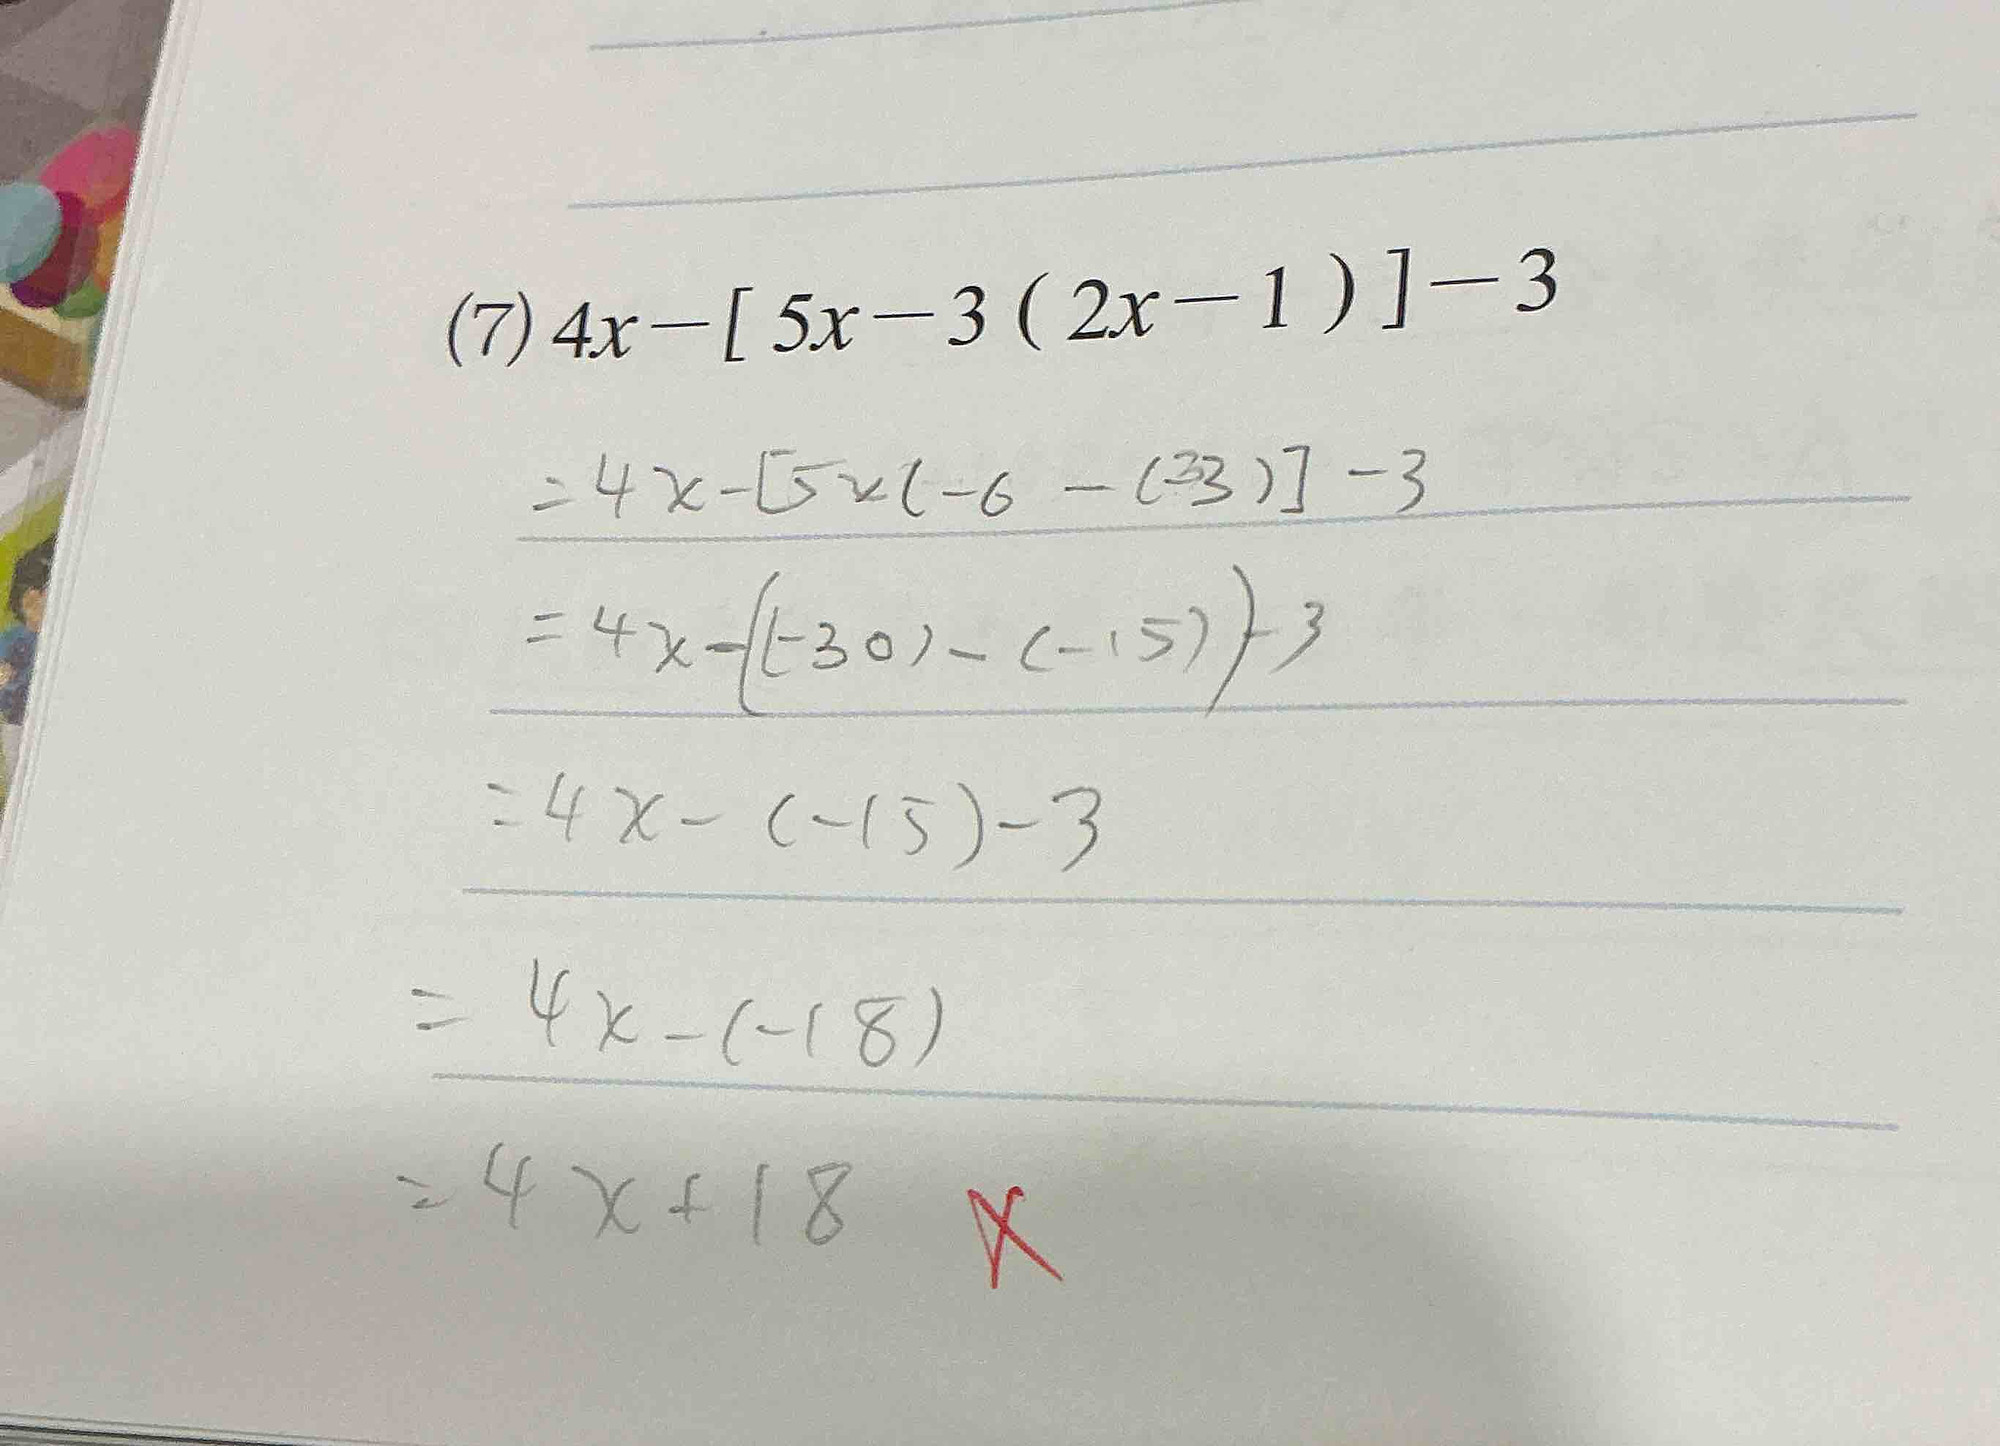 (7) 4x－[ 5x－3 ( 2x－1 ) ]－3
=4x-[5x(-6 - (33)]-3
=4x-((-30)-(-15))-3
=4x-(-15)-3
=4x-(-18)
=4x+18